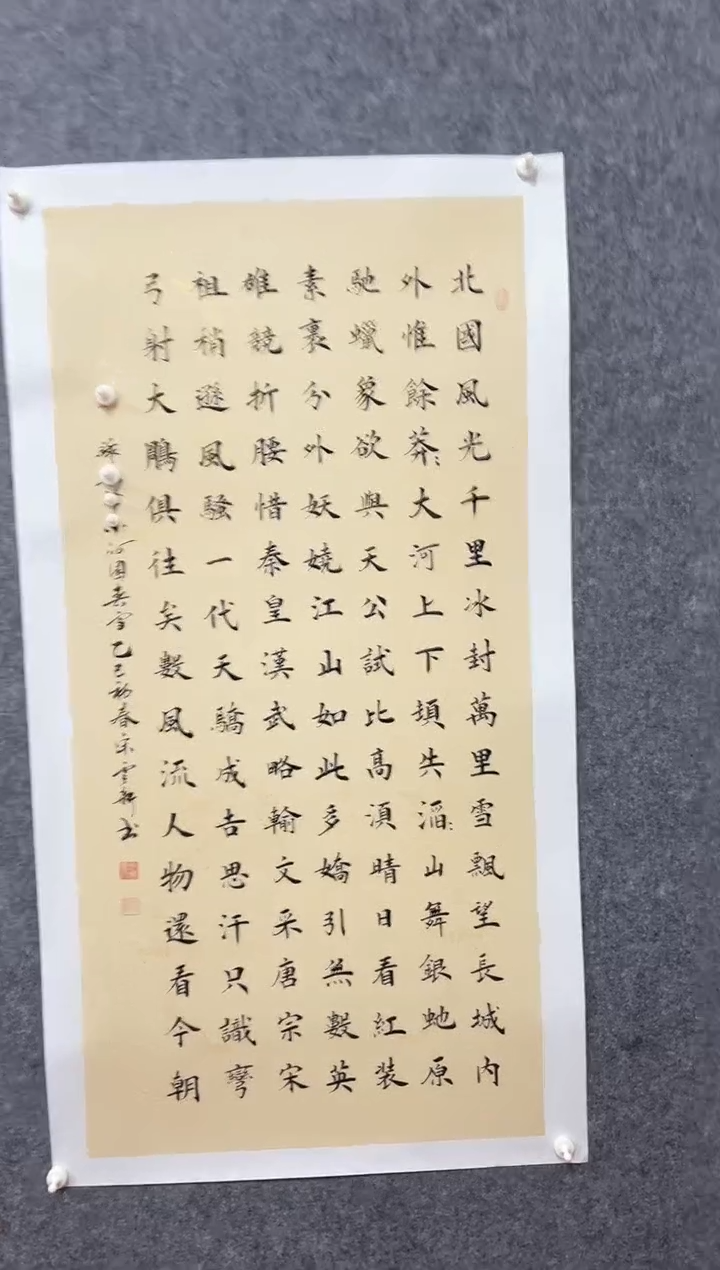 北國風光千里冰封萬里雪飄望長城內
外惟餘莽〻大河上下頓失滔〻山舞銀虵原
馳蠟象欲與天公試比高須晴日看紅裝
素裹分外妖嬈江山如此多嬌引無數英
雄競折腰惜秦皇漢武略輸文采唐宗宋
祖稍遜風騷一代天驕成吉思汗只識彎
弓射大鵰俱往矣數風流人物還看今朝
春雪乙巳初春宋雲书